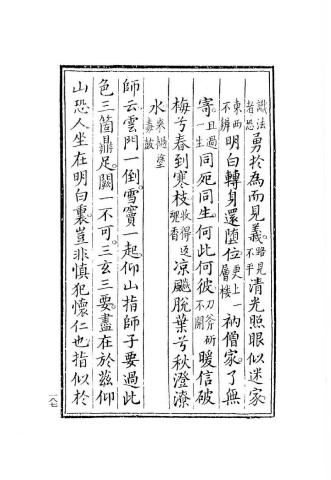 識法者恐勇於為而見義路見不平清光照眼似迷家
東西不辨明白轉身還墮位更上一層樓衲僧家了無
寄且過一生同死同生何此何彼刀斧斫不開暖信破
梅兮春到寒枝收得返魂香凉飈脫葉兮秋澄潦
水來撾塗毒鼓
師云雲門一倒雪竇一起仰山指師子要過此
色三箇鼎足闕一不可三玄三要盡在於茲仰
山恐人坐在明白裏豈非慎犯懷仁也指似於
一八七